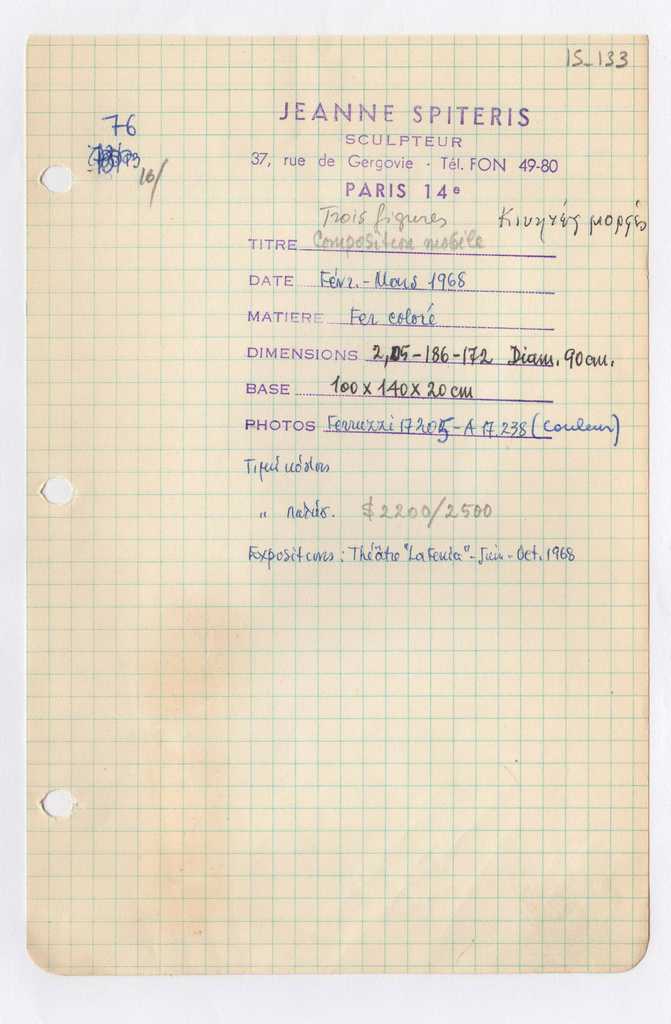 IS_133
76
16/
JEANNE SPITERIS
SCULPTEUR
37, rue de Gergovie - Tél. FON 49-80
PARIS 14e
Trois figures Κινητές μορφές
TITRE Composition mobile
DATE Févr. - Mars 1968
MATIERE Fer coloré
DIMENSIONS 2,05-186-172 Diam. 90cm.
BASE 100 x 140 x 20 cm
PHOTOS Ferruzzi 17205-A 17.238 (couleur)
Τιμή κόστους
" $2200/2500
Expositions: Théâtre "La Fenice" - Juin - Oct. 1968